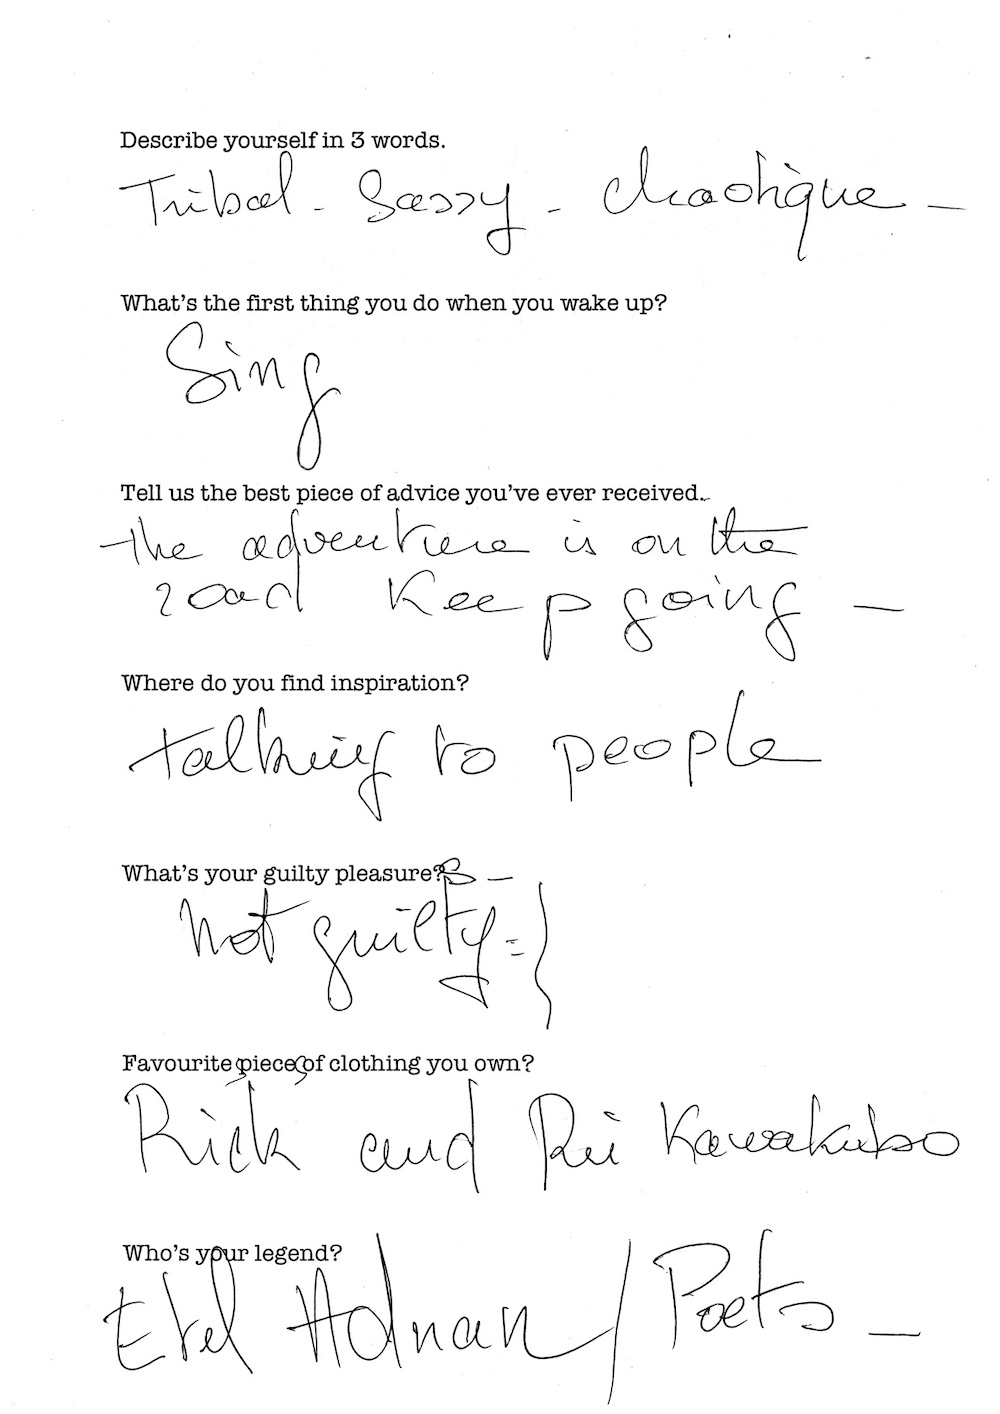 Describe yourself in 3 words.
Tribal - Sassy - chaotique -
What's the first thing you do when you wake up?
Sing
Tell us the best piece of advice you've ever received.
the adventure is on the
road Keep going -
Where do you find inspiration?
talking to people
What's your guilty pleasure?s -
not guilty -
Favourite pieces of clothing you own?
Rick and Rei Kawakubo
Who's your legend?
Etel Adnan / Poets -